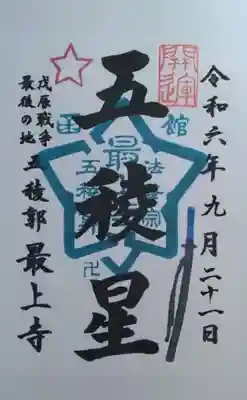 令和六年九月二十一日
開運
五稜星
函館
最
法華宗
五稜郭
卍
戊辰戦争
最後の地
五稜郭 最上寺